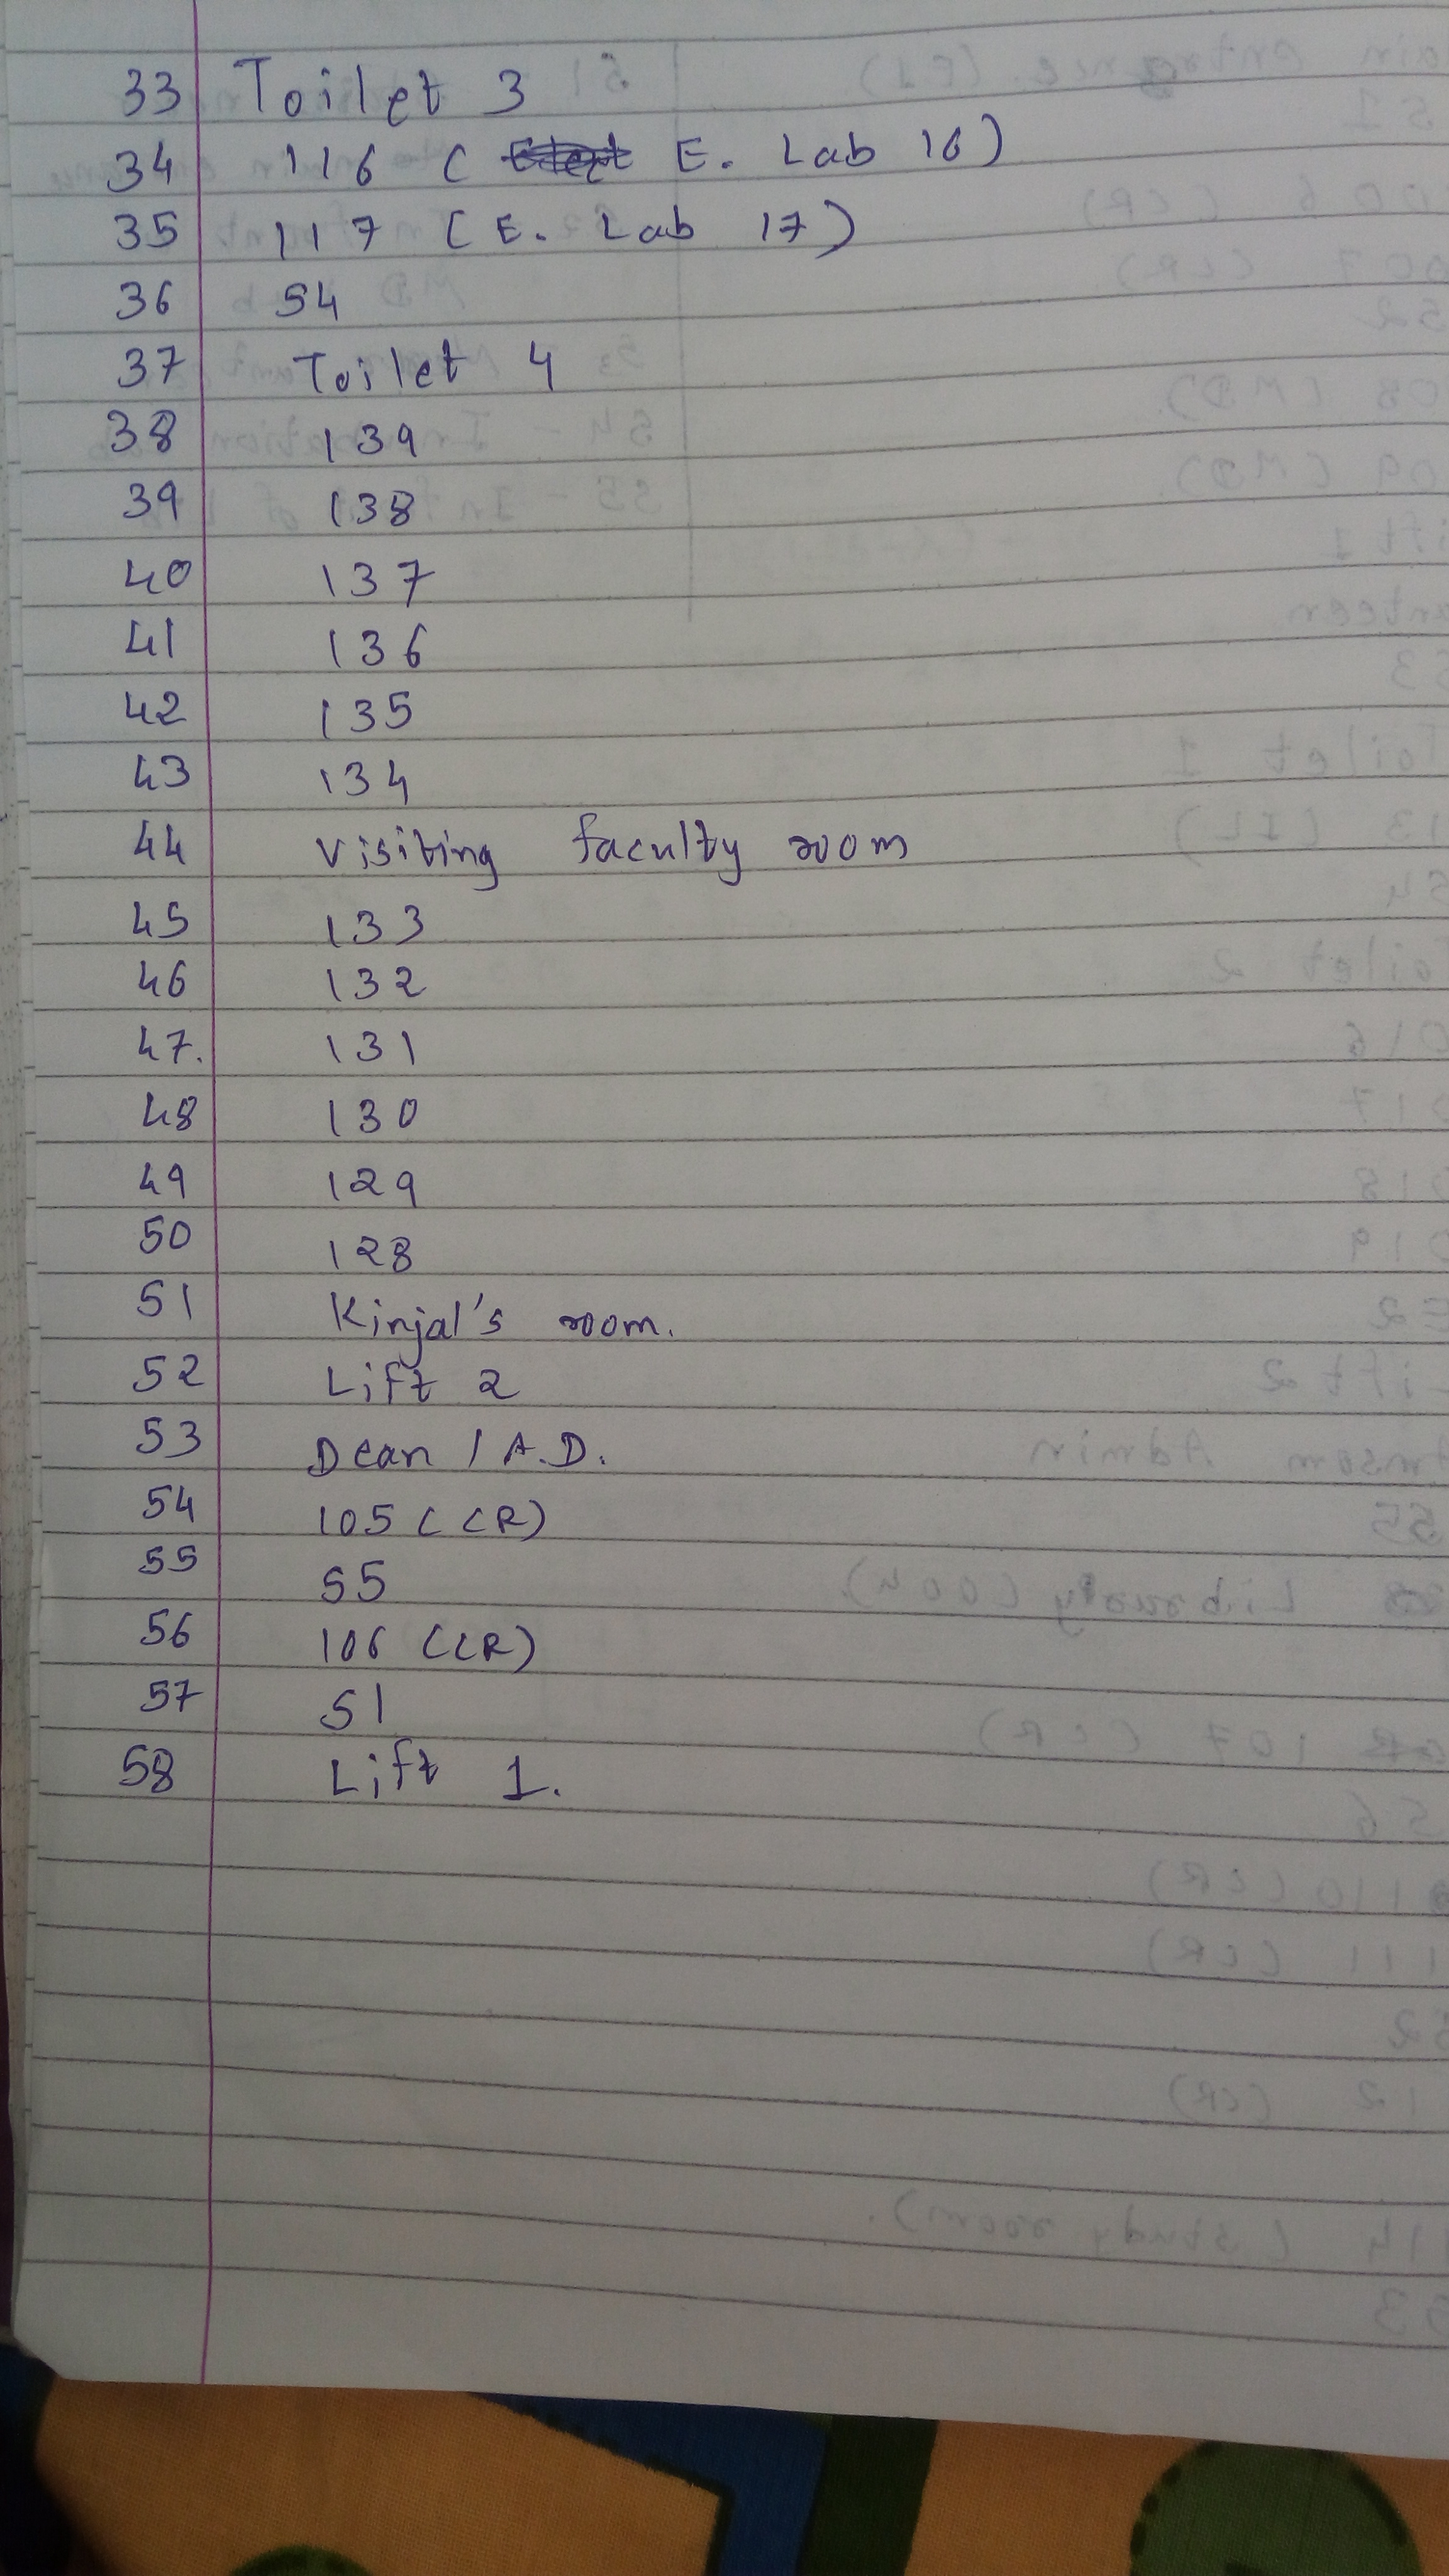 33 Toilet 3
34 116 ( E. Lab 16)
35 117 (E. Lab 17)
36 S4
37 Toilet 4
38 139
39 138
40 137
41 136
42 135
43 134
44 Visiting faculty room
45 133
46 132
47. 131
48 130
49 129
50 128
51 Kinjal's room.
52 Lift 2
53 Dean / A.D.
54 105 (CR)
55 S5
56 106 (CR)
57 S1
58 Lift 1.